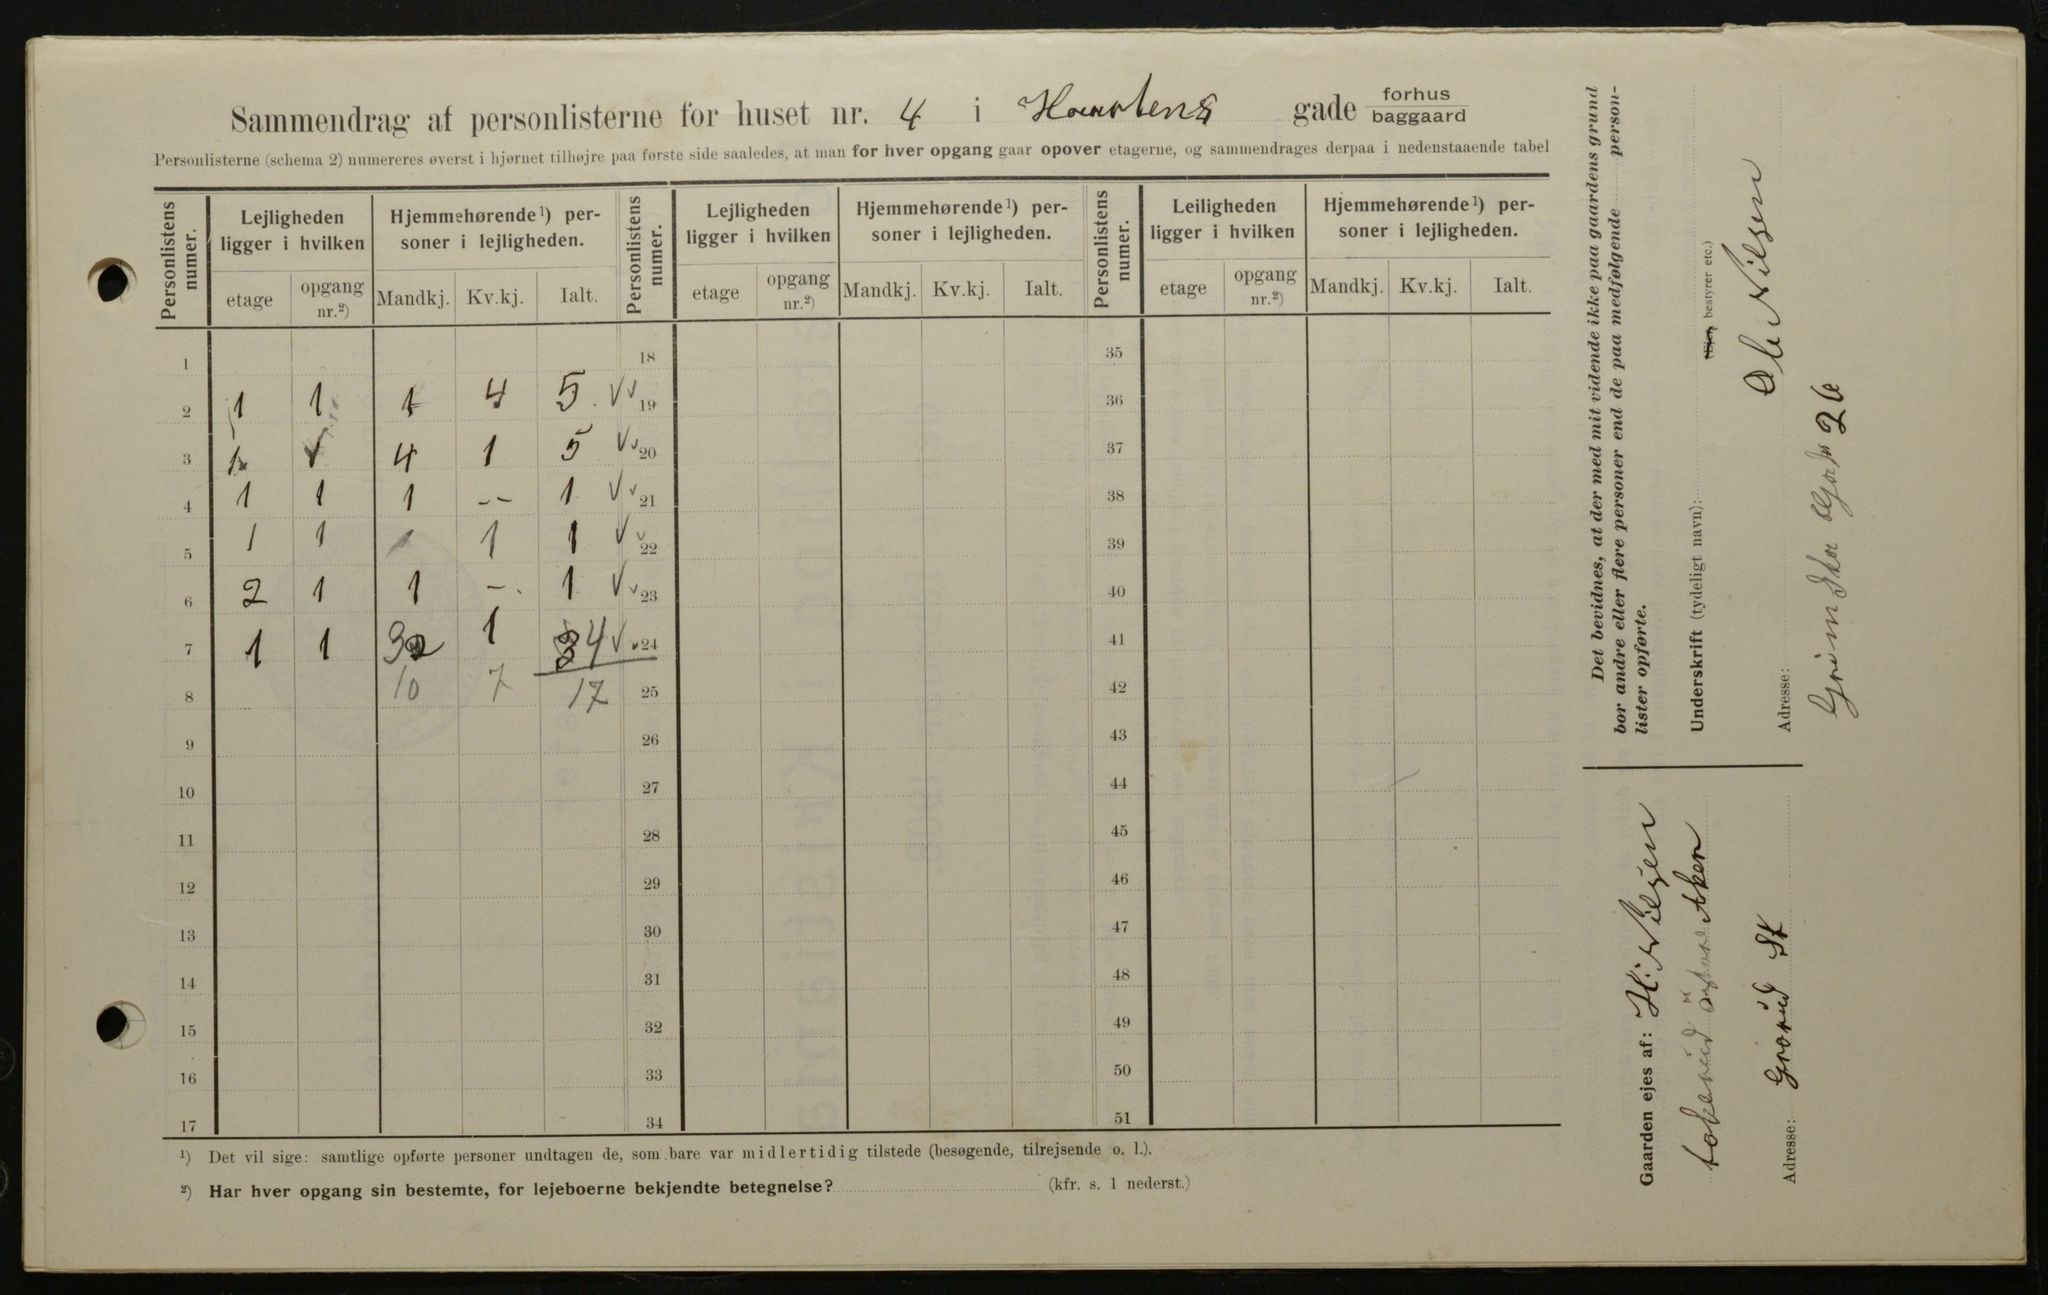 Sammendrag af personlisterne for huset nr. 4 i gade forhus baggaard
Personlisterne (schema 2) numereres øverst i hjørnet tilhøjre paa første side saaledes, at man for hver opgang gaar opover etagerne, og sammendrages derpaa i nedenstaaende tabel
Personlistens numer. Lejligheden ligger i hvilken Hjemmehørende¹) personer i lejligheden. Personlistens numer. Lejligheden ligger i hvilken Hjemmehørende¹) personer i lejligheden. Personlistens numer. Leiligheden ligger i hvilken Hjemmehørende¹) personer i lejligheden.
etage opgang nr.²) Mandkj. Kv.kj. Ialt. etage opgang nr.²) Mandkj. Kv.kj. Ialt. etage opgang nr.²) Mandkj. Kv.kj. Ialt.
1 18 35
2 1 1 1 4 5 19 36
3 1 1 4 1 5 20 37
4 1 1 1 -- 1 21 38
5 1 1 1 1 22 39
6 2 1 1 - 1 23 40
7 1 1 3 1 4 24 41
8 10 7 17 25 42
9 26 43
10 27 44
11 28 45
12 29 46
13 30 47
14 31 48
15 32 49
16 33 50
17 34 51
¹) Det vil sige: samtlige opførte personer undtagen de, som bare var midlertidig tilstede (besøgende, tilrejsende o. l.).
²) Har hver opgang sin bestemte, for lejeboerne bekjendte betegnelse? (kfr. s. 1 nederst.)
Det bevidnes, at der med mit vidende ikke paa gaardens grund
bor andre eller flere personer end de paa medfølgende personlister opførte.
Underskrift (tydeligt navn): (Ejer, bestyrer etc.)
Ole Nilsen
Adresse:
26
Gaarden ejes af: H. Nilsen
Aker
Adresse: Grorud St